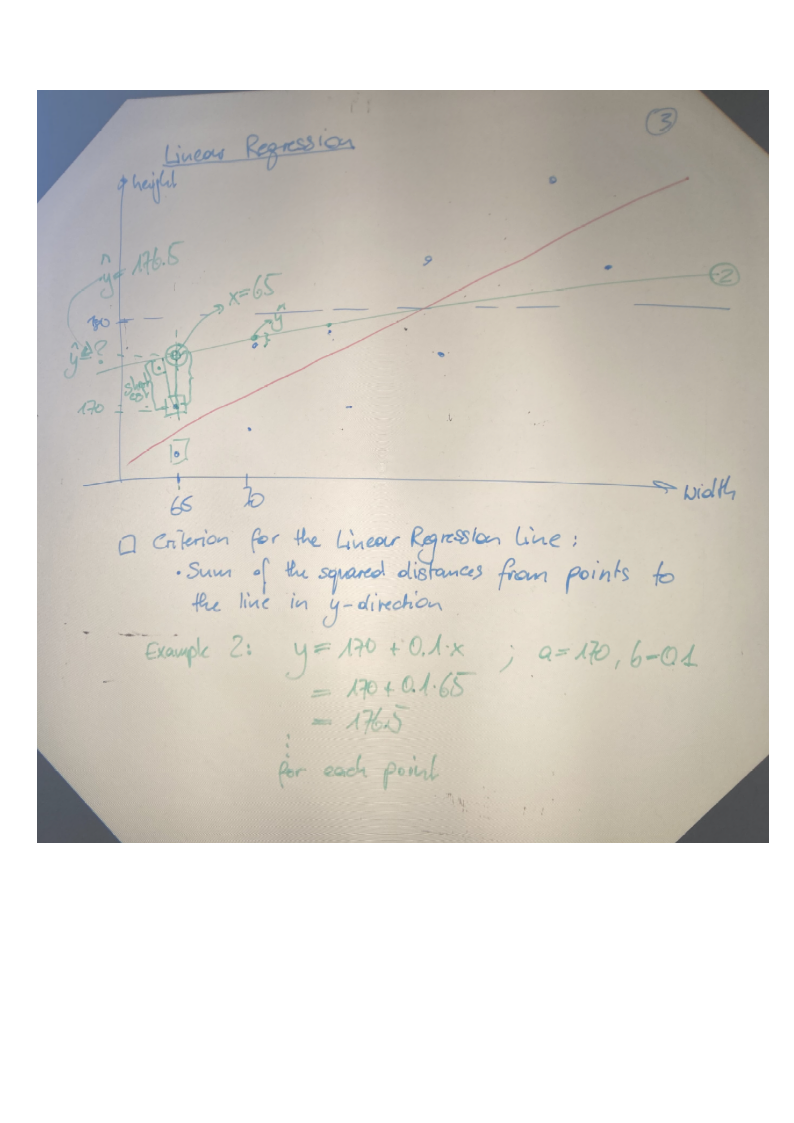 3
Linear Regression
height
ŷ = 176.5
x=65
ŷ
2
ŷ = ?
170
65
70
width
Criterion for the Linear Regression line:
• Sum of the squared distances from points to
the line in y-direction
Example 2: y = 170 + 0.1·x ; a=170, b=0.1
= 170+0.1·65
= 176.5
for each point